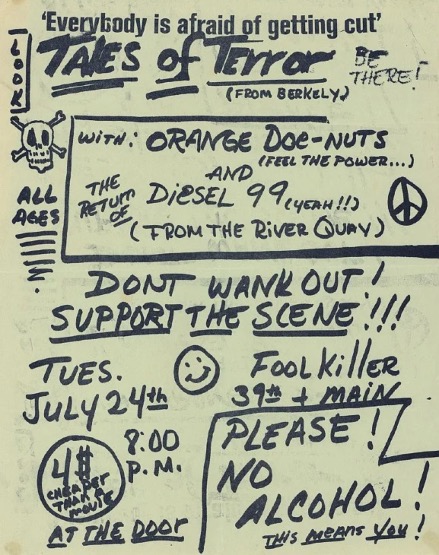 'Everybody is afraid of getting cut'
LOOK
TALES of TERROR
BE THERE!
(FROM BERKELY)
WITH: ORANGE DOE-NUTS
(FEEL THE POWER...)
AND
THE RETURN OF
DIESEL 99 (YEAH!!)
(FROM THE RIVER QUAY)
ALL
AGES
DONT WANK OUT!
SUPPORT THE SCENE!!!
TUES.
JULY 24th
FOOLKILLER
39th + MAIN
8:00
P.M.
4$
CHEAPER
THAN A
MOVIE
AT THE DOOR
PLEASE!
NO
ALCOHOL!
THIS MEANS YOU!